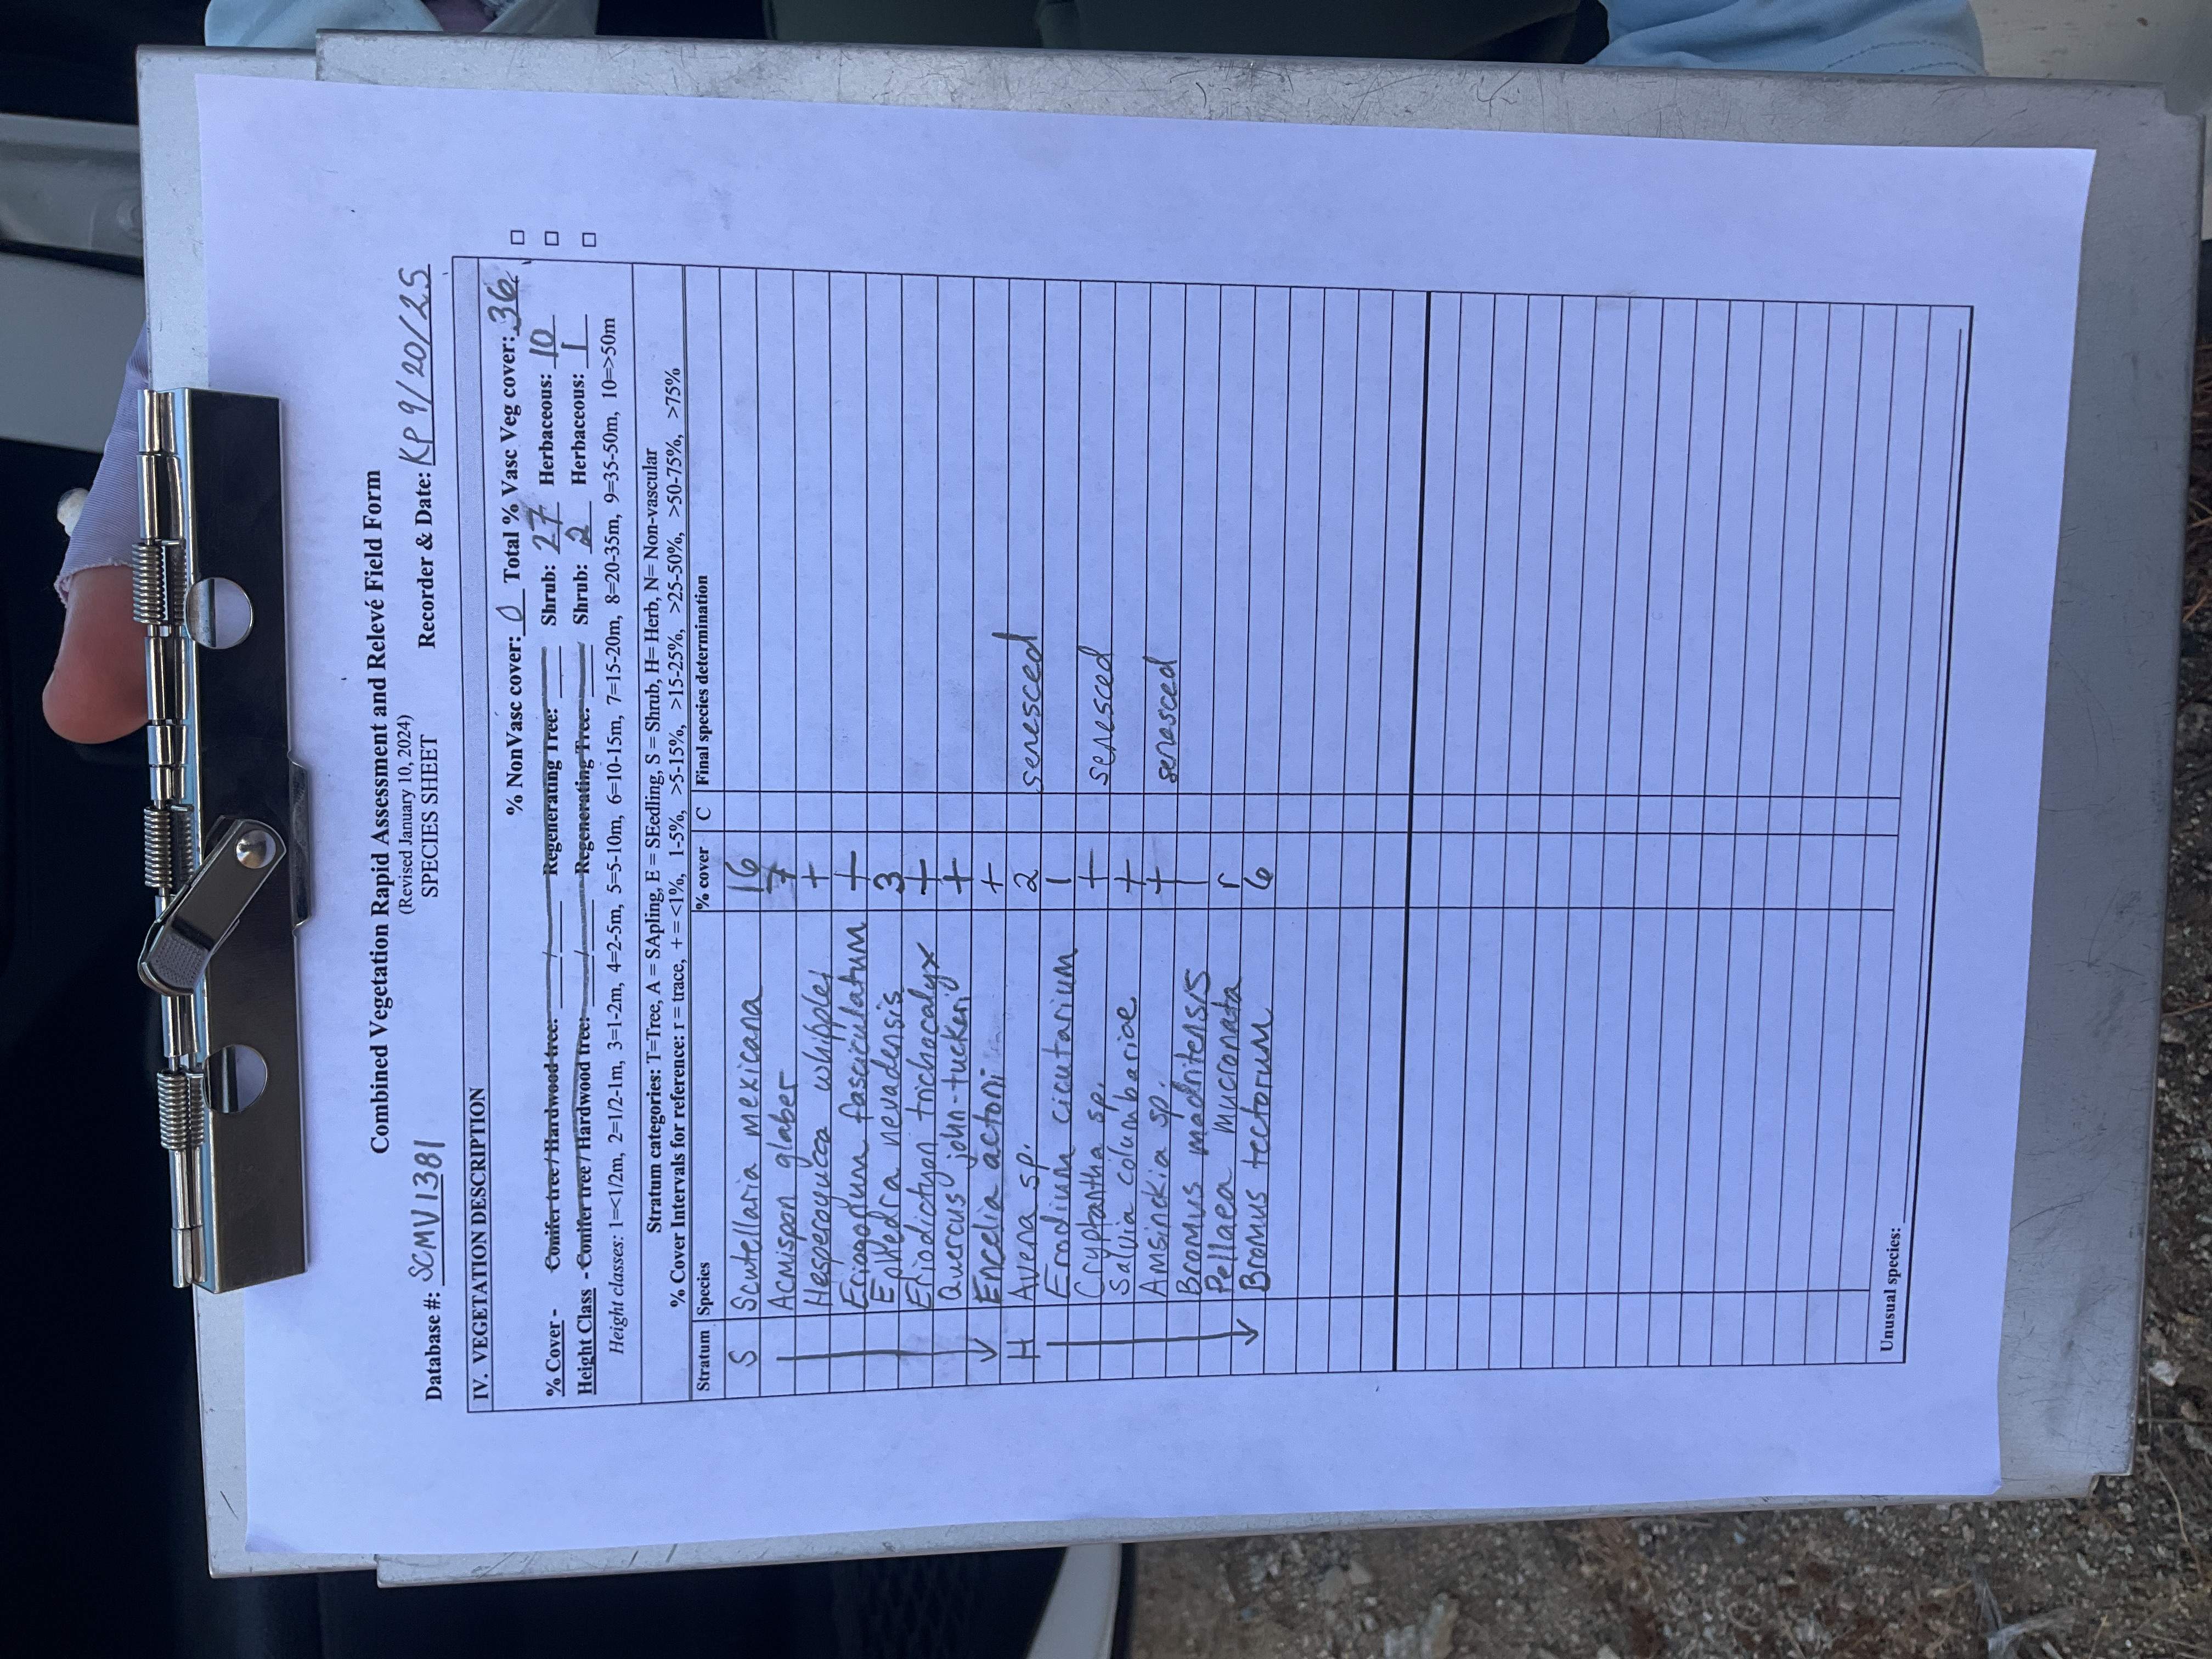 Combined Vegetation Rapid Assessment and Relevé Field Form
(Revised January 10, 2024)
SPECIES SHEET
Database #: SCMV1381 Recorder & Date: KP 9/20/25
IV. VEGETATION DESCRIPTION
% NonVasc cover: 0 Total % Vasc Veg cover: 36 □
% Cover - Conifer tree / Hardwood tree: / Regenerating Tree: Shrub: 27 Herbaceous: 10 □
Height Class - Conifer tree / Hardwood tree: / Regenerating Tree: Shrub: 2 Herbaceous: 1 □
Height classes: 1=<1/2m, 2=1/2-1m, 3=1-2m, 4=2-5m, 5=5-10m, 6=10-15m, 7=15-20m, 8=20-35m, 9=35-50m, 10=>50m
Stratum categories: T=Tree, A = SApling, E = SEedling, S = Shrub, H= Herb, N= Non-vascular
% Cover Intervals for reference: r = trace, + = <1%, 1-5%, >5-15%, >15-25%, >25-50%, >50-75%, >75%
Stratum Species % cover C Final species determination
S Scutellaria mexicana 16
Acmispon glaber 7
Hesperoyucca whipplei +
Eriogonum fasciculatum +
Ephedra nevadensis 3
Eriodictyon trichocalyx +
Quercus john-tuckeri +
Encelia actoni +
H Avena sp. 2 senesced
Erodium cicutarium 1
Cryptantha sp. + senesced
Salvia columbariae +
Amsinckia sp. + senesced
Bromus madritensis 1
Pellaea mucronata r
Bromus tectorum 6
Unusual species: